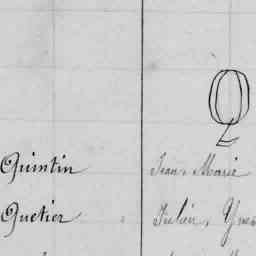 Q
Quintin Jean Marie
Quetier Julien, Yves